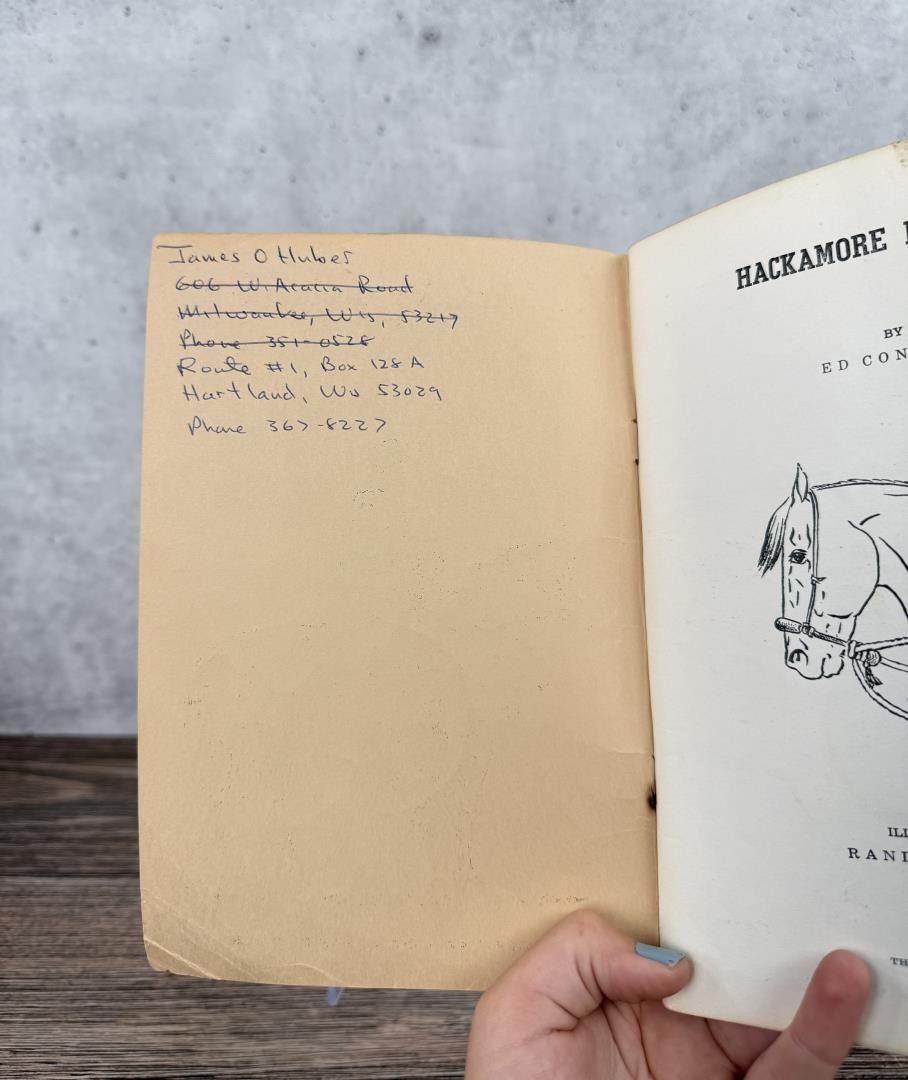 James O Huber
606 W. Acacia Road
Milwaukee, Wis, 53217
Phone 351-0528
Route #1, Box 128 A
Hartland, Wis 53029
Phone 367-8227
HACKAMORE
BY
ED CON
ILL
RAND
TH